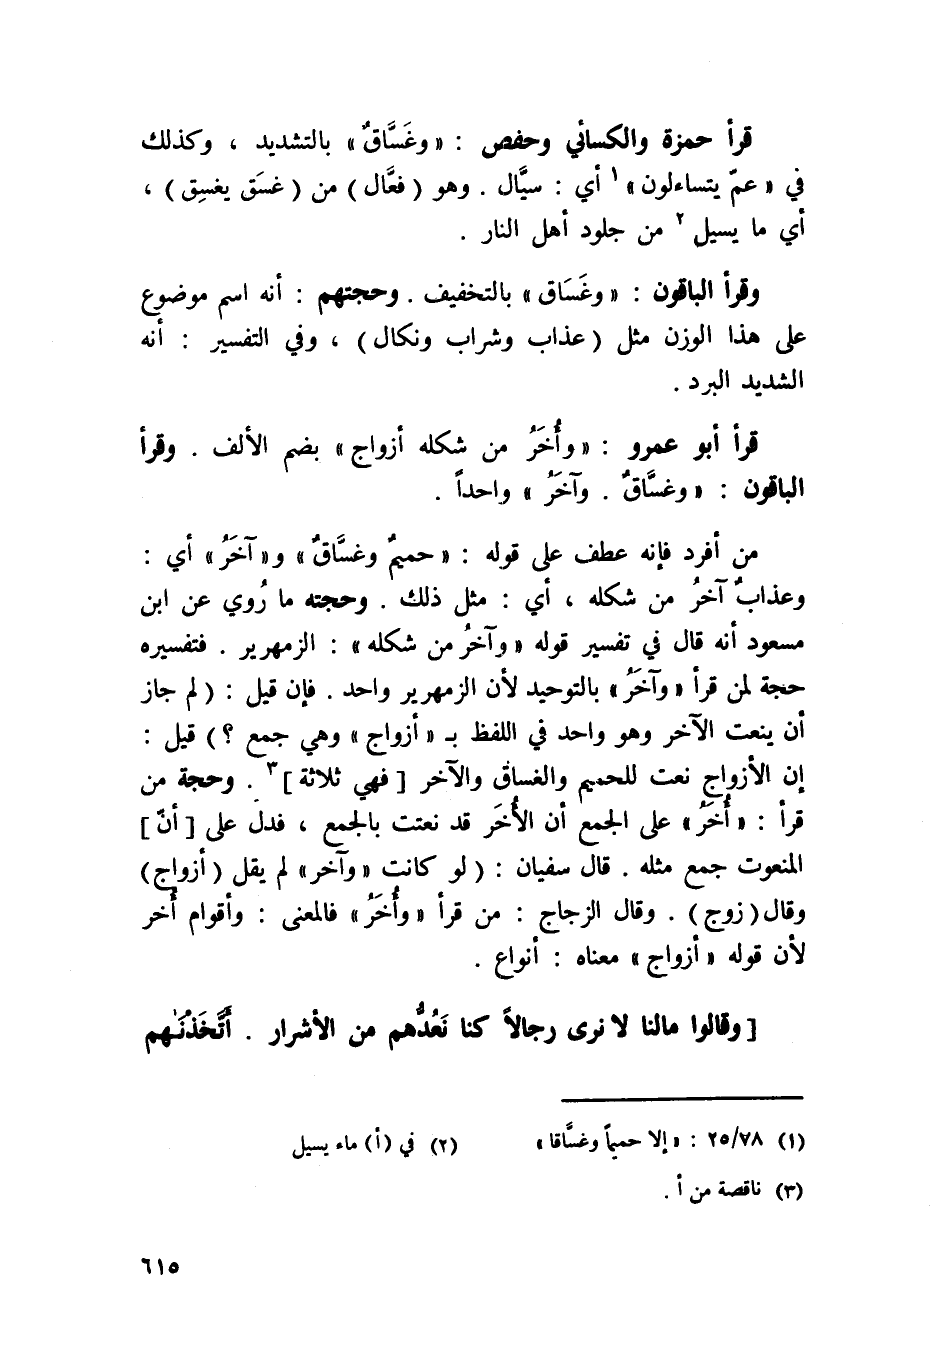 قرأ حمزة والكسائي وحفص : « وغَسَّاقٌ » بالتشديد ، وكذلك
في « عمّ يتساءلون » ١ أي : سيَّال . وهو ( فعَّال ) من ( غسَق يغسِق ) ،
أي ما يسيل ٢ من جلود أهل النار .
وقرأ الباقون : « وغَسَاق » بالتخفيف . وحجتهم : أنه اسم موضوع
على هذا الوزن مثل ( عذاب وشراب ونكال ) ، وفي التفسير : أنه
الشديد البرد .
قرأ أبو عمرو : « وأُخَرُ من شكله أزواج » بضم الألف . وقرأ
الباقون : « وغسَّاقٌ . وآخَرُ » واحداً .
من أفرد فإنه عطف على قوله : « حميمٌ وغسَّاقٌ » و« آخَرُ » أي :
وعذابٌ آخرُ من شكله ، أي : مثل ذلك . وحجته ما رُوي عن ابن
مسعود أنه قال في تفسير قوله « وآخرُ من شكله » : الزمهرير . فتفسيره
حجة لمن قرأ « وآخَرُ » بالتوحيد لأن الزمهرير واحد . فإن قيل : ( لم جاز
أن ينعت الآخر وهو واحد في اللفظ بـ « أزواج » وهي جمع ؟ ) قيل :
إن الأزواج نعت للحميم والغساق والآخر [ فهي ثلاثة ] ٣ . وحجة من
قرأ : « أُخَرُ » على الجمع أن الأُخَر قد نعتت بالجمع ، فدل على [ أنّ ]
المنعوت جمع مثله . قال سفيان : ( لو كانت « وآخر » لم يقل ( أزواج )
وقال ( زوج ) . وقال الزجاج : من قرأ « وأُخَرُ » فالمعنى : وأقوام أُخر
لأن قوله « أزواج » معناه : أنواع .
[ وقالوا مالنا لا نرى رجالاً كنا نَعُدُّهم من الأشرار . أَتَّخَذْنَٰهم
(١) ٢٥/٧٨ : « إلا حميماً وغسَّاقا » (٢) في (أ) ماء يسيل
(٣) ناقصة من أ .
٦١٥